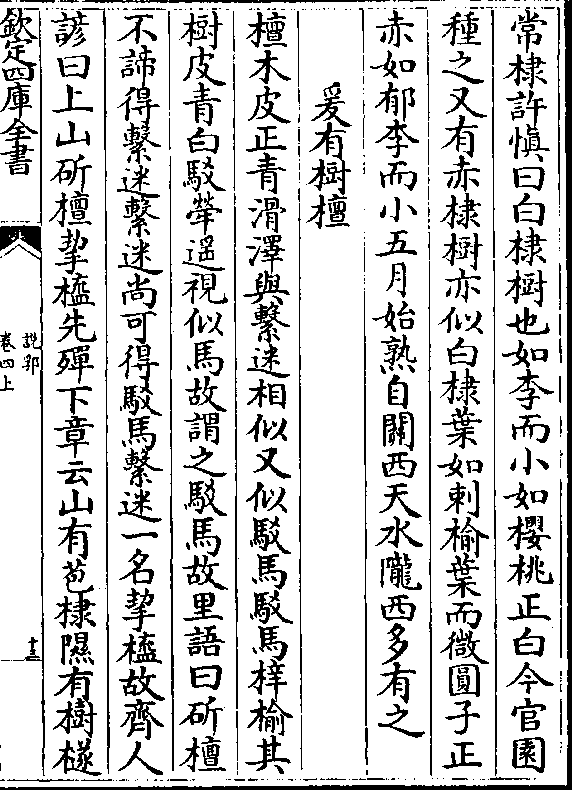 常棣許慎曰白棣樹也如李而小如櫻桃正白今官園
種之又有赤棣樹亦似白棣葉如刺榆葉而微圓子正
赤如郁李而小五月始熟自關西天水隴西多有之
爰有樹檀
檀木皮正青滑澤與繫迷相似又似駮馬駮馬梓榆其
樹皮青白駮犖遥視似馬故謂之駮馬故里語曰斫檀
不諦得繫迷繫迷尚可得駮馬繫迷一名挈橀故齊人
諺曰上山斫檀挈橀先殫下章云山有苞棣隰有樹檖
欽定四庫全書
説郛
卷四上
十三